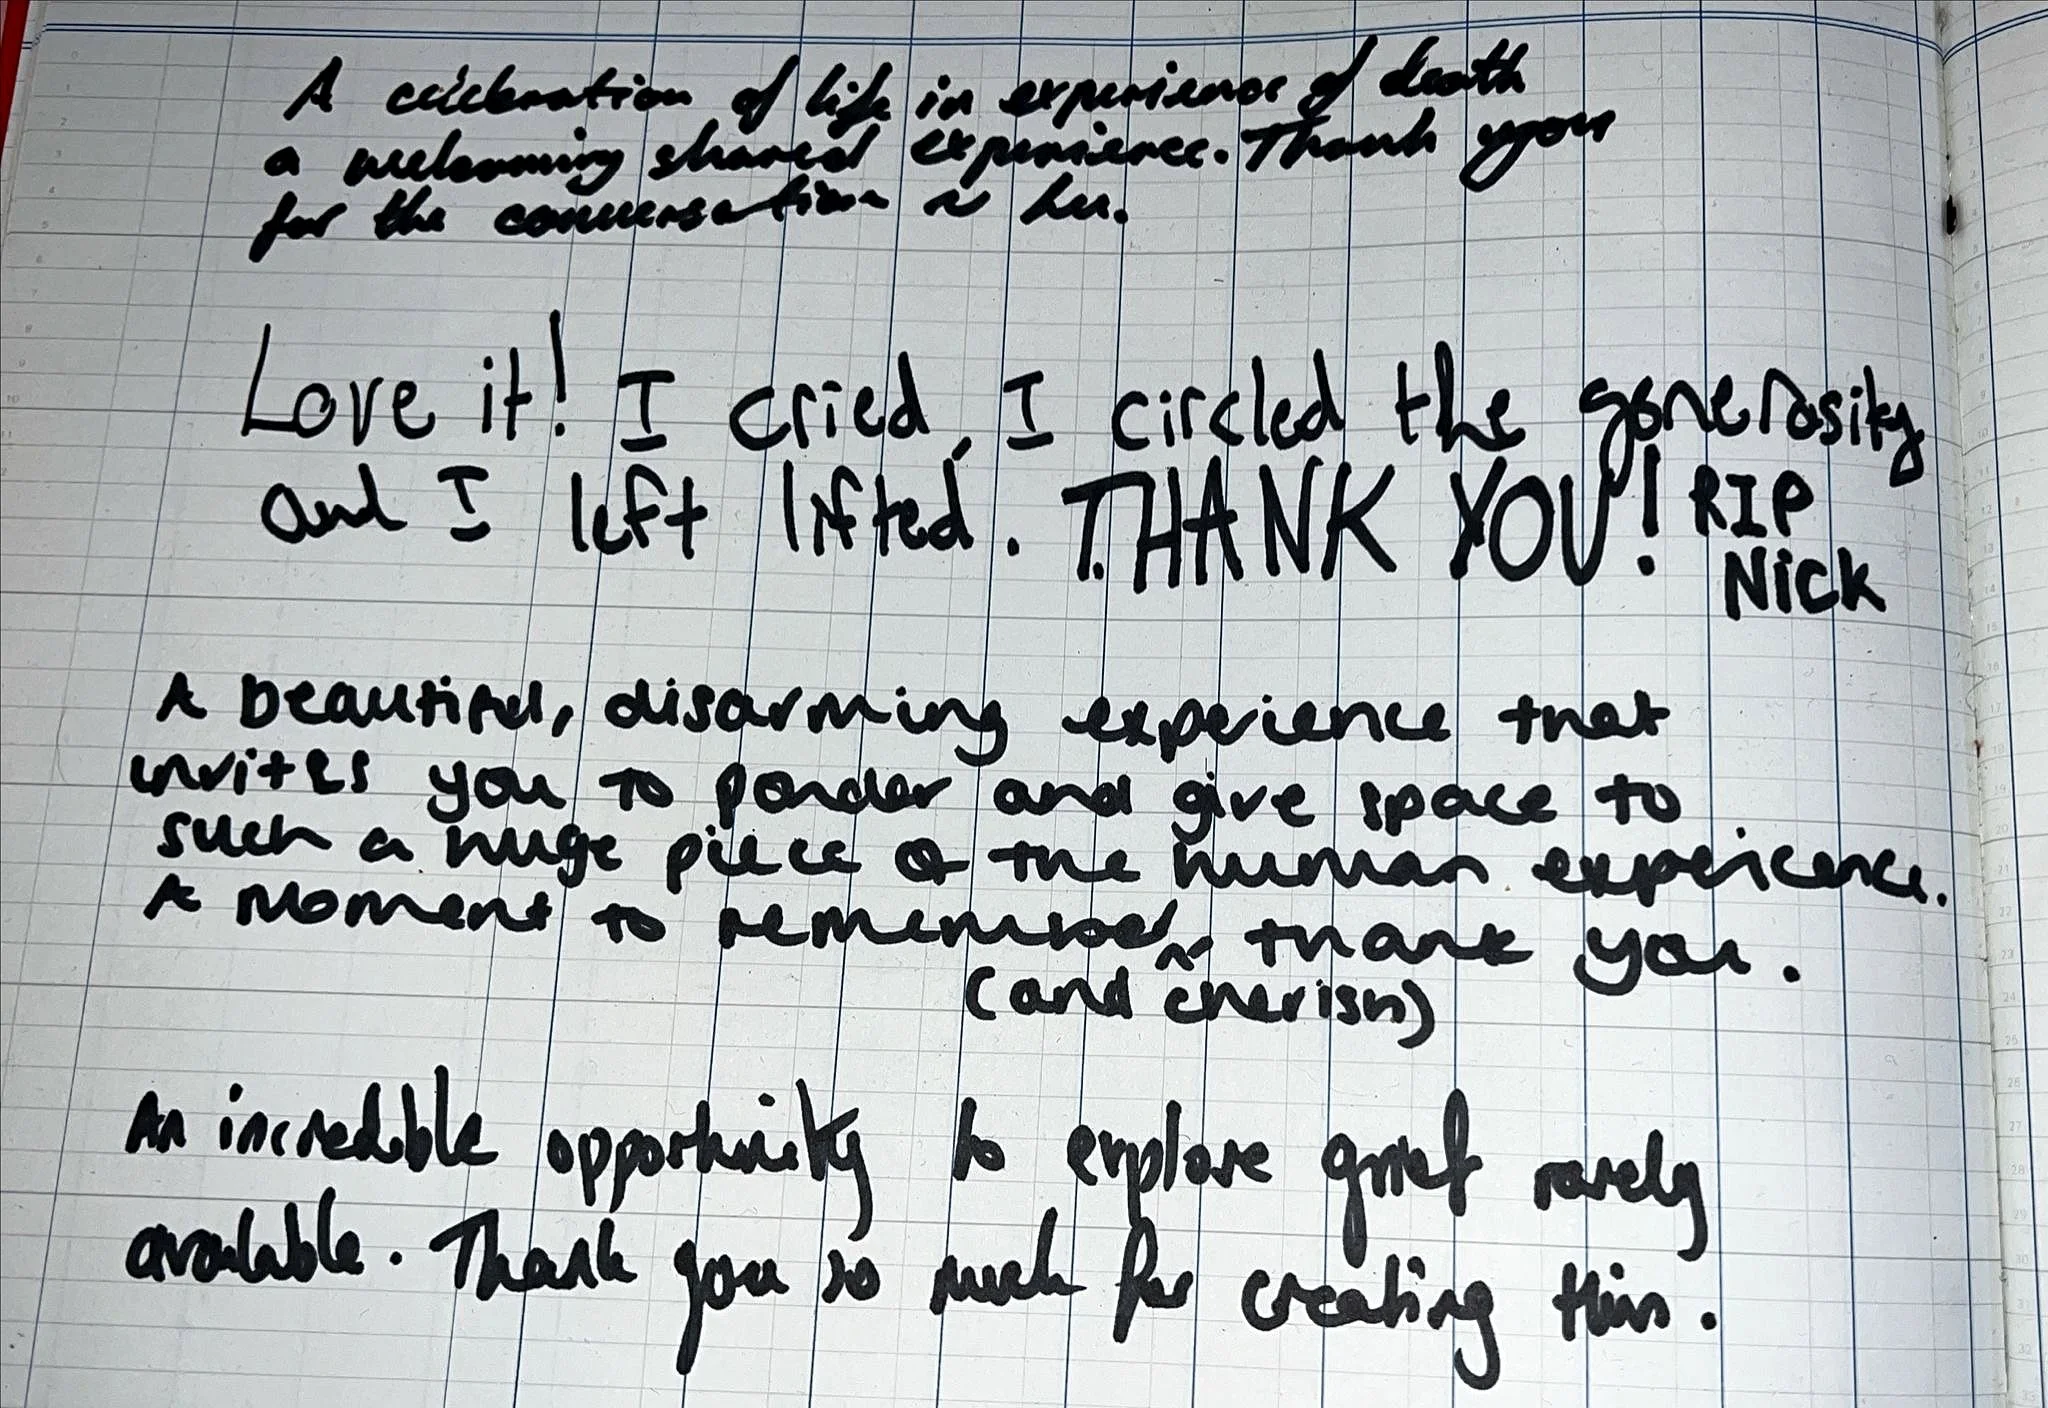 A celebration of life in experience of death
a welcoming shared experience. Thank you
for the conversation ~
Love it! I cried, I circled the generosity
and I left lifted. THANK YOU! RIP
Nick
A beautiful, disarming experience that
invites you to ponder and give space to
such a huge piece of the human experience.
A moment to remember ^ thank you.
(and cherish)
An incredible opportunity to explore grief rarely
available. Thank you so much for creating this.